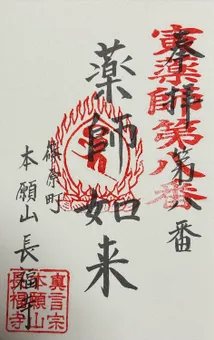 奉拝第八番
寅薬師第八番
薬師如来
篠原町
本願山長福寺
真言宗
本願山
長福寺